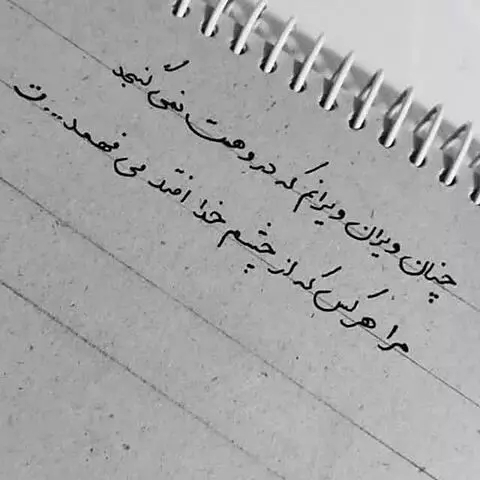 چنان ویران ویرانم که در وهمت نمی گنجد
مرا هرکس که از چشم خدا افتد می فهمد...ت